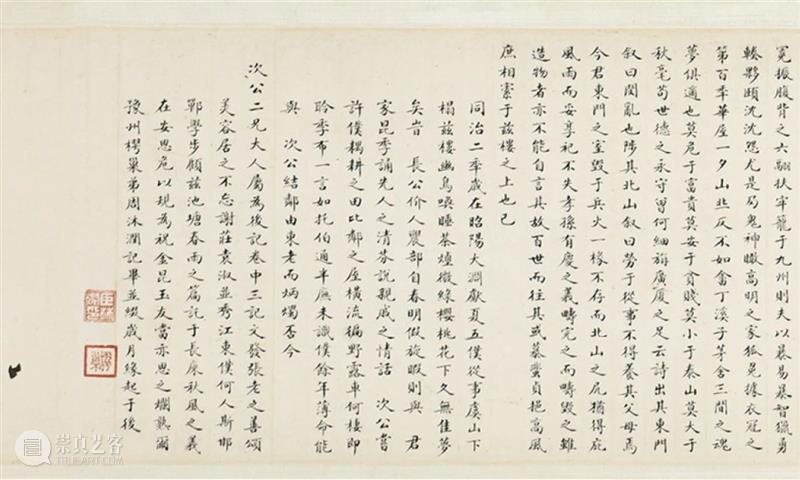 冕振腹背之六翮扶牢籠于九州則夫以暴易暴智獵勇
轔夥頤沈沈怨尤是局鬼神瞰高明之家狐兔據衣冠之
第百年華屋一夕山北仄不如畬丁溪子茅舍三間之魂
夢俱適也莫危于富貴莫安于貧賤莫小于泰山莫大于
秋毫苟世德之永守曾何細旃廣厦之足云詩出其東門
叙曰閔亂也陟其北山叙曰勞于從事不得養其父母焉
今君東門之室毀于兵火一椽不存而北山之凥猶得庇
風雨而妥享祀不失孝孫有慶之義疇完之而疇毀之雖
造物者亦不能自言其故百世而往其或慕蜚貞挹高風
庶相索于兹樓之上也已
同治二年歲在昭陽大淵獻夏五僕從事虞山下
榻兹樓幽鳥喚睡茶煙微綠櫻桃花下久無佳夢
矣昔 長公价人農部自春明假旋暇則與 君
家昆季誦先人之清芬說親戚之情話 次公嘗
許僕耦耕之田比鄰之屋橫流徧野露車何棲即
聆季布一言如托伯通半廡未識僕餘年薄命能
與 次公結鄰由東老而炳燭否今
次公二兄大人屬為後記卷中三記文發張老之善頌
美容居之不忘謝莊袁淑並秀江東僕何人斯邯
鄲學步顧兹池塘春雨之篇託于長康秋風之義
在安思危以現為祝金昆玉友當亦思之爛熟爾
豫州樛巢弟周沐潤記畢並綴歲月緣起于後
崇真艺客